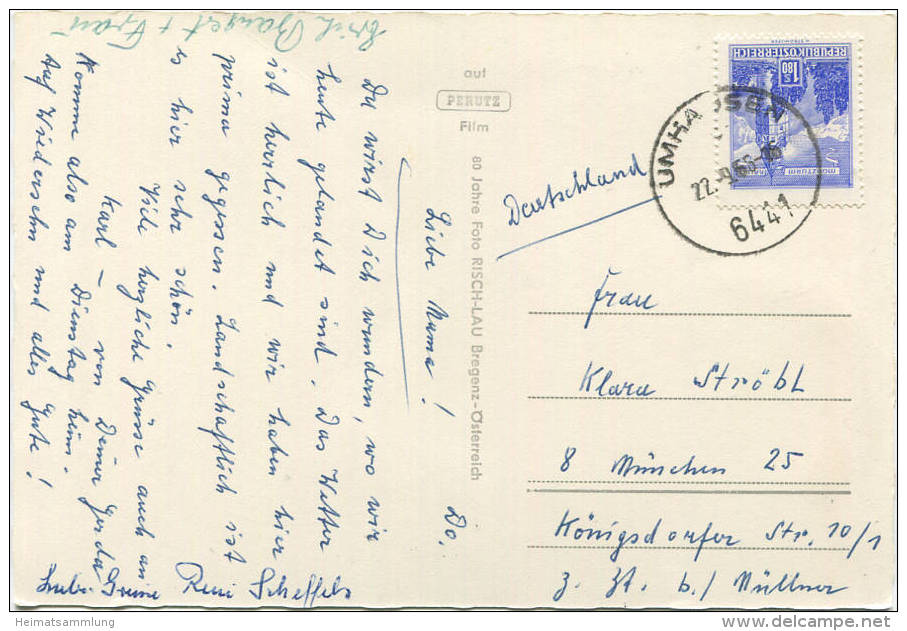 Liebe Mama! Do.
Du wirst Dich wundern, wo wir
heute gelandet sind. Das Wetter
ist herrlich und wir haben hier
prima gegessen. Landschaftlich ist
es hier sehr schön.
Viele herzliche Grüsse auch an
Karl – von Deiner Gerda
Komme also am Dienstag heim.
Auf Wiedersehn und alles Gute!
Erich + Frau
Scheffels
auf
PERUTZ
Film
80 Jahre Foto RISCH-LAU Bregenz-Österreich
REPUBLIK ÖSTERREICH
1.80
S
MÜNZTURM
UMHAUSEN
6441
Deutschland
Frau
Klara Ströbl
8 München 25
Königsdorfer Str. 10/1
z. Zt. b./ Müllner
© Heimatsammlung
www.delcampe.net